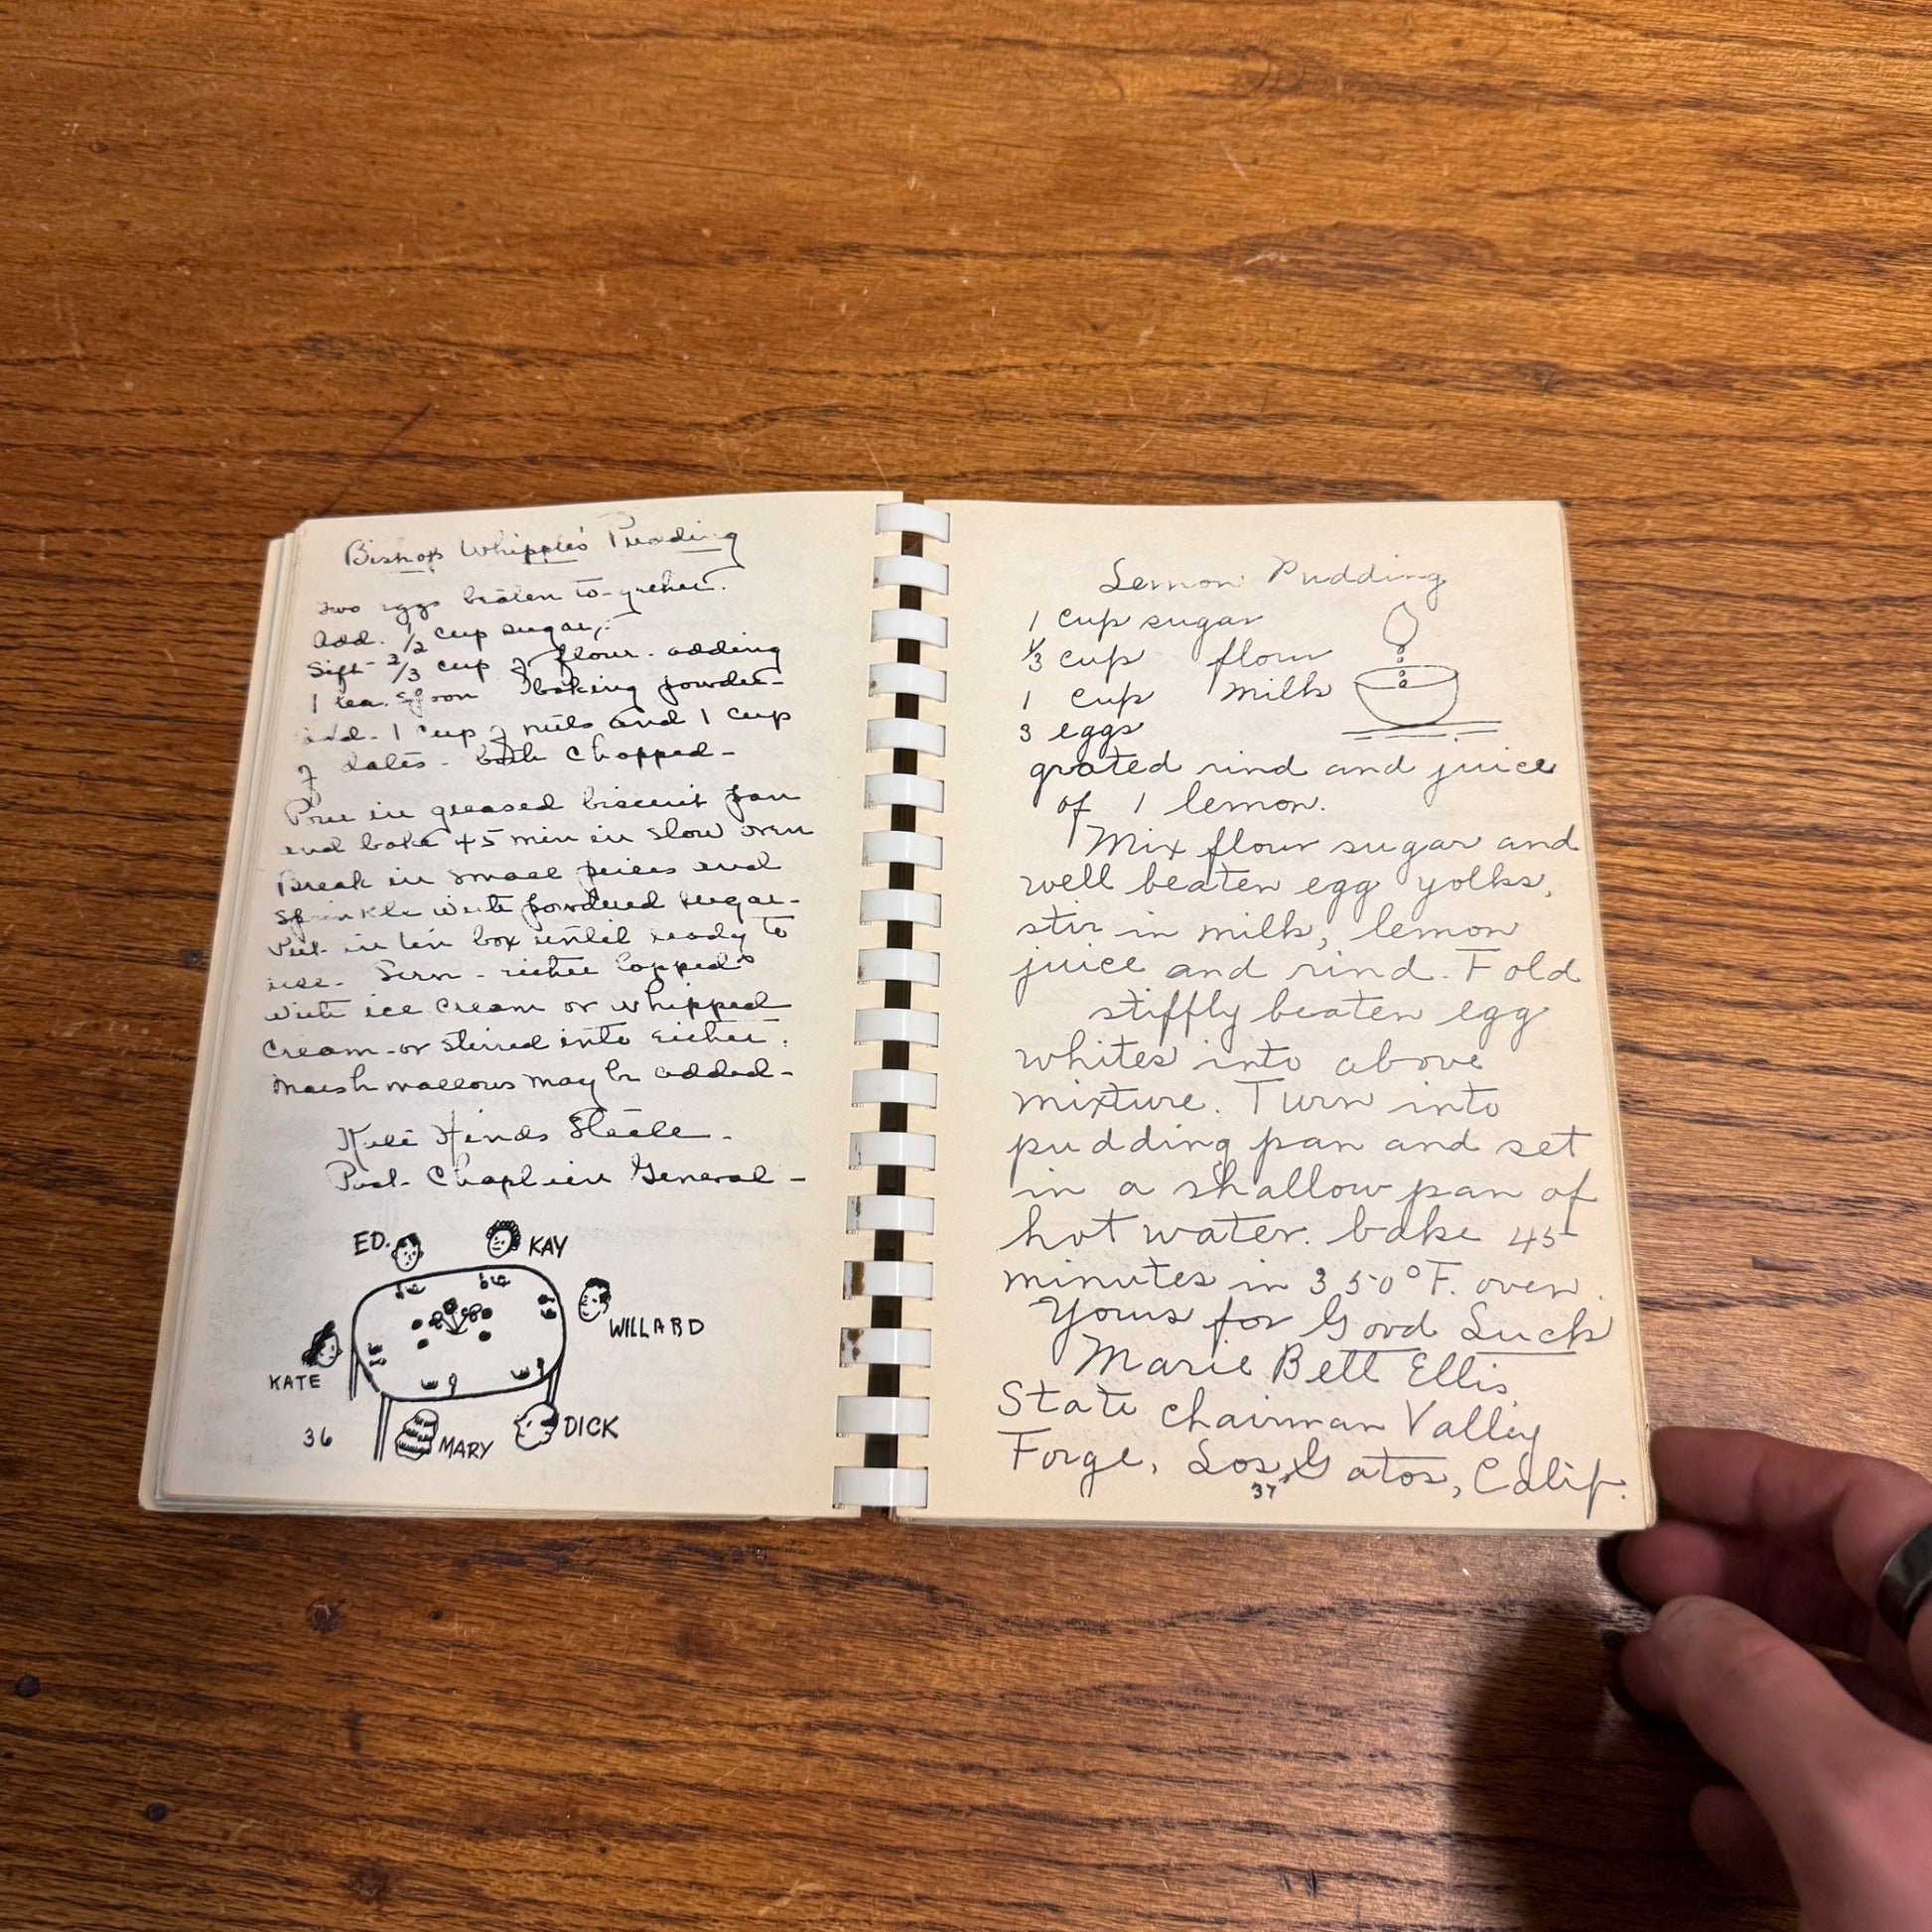 Bishop Whipple's Pudding
Two eggs beaten to-gether.
Add. 1/2 cup sugar,
Sift - 2/3 cup of flour. adding
1 tea. spoon baking powder -
add. 1 cup of nuts and 1 cup
of dates - both chopped -
Pour in greased biscuit pan
and bake 45 min in slow oven
Break in small pieces and
sprinkle with powdered sugar -
Put in tin box until ready to
use. Serve - either topped
with ice cream or whipped
cream - or stirred into either.
Marshmallows may be added -
Hinds Steele -
Past - Chaplain General -
ED.
KAY
WILLARD
KATE
MARY
DICK
36
Lemon Pudding
1 cup sugar
1/3 cup flour
1 cup milk
3 eggs
grated rind and juice
of 1 lemon.
Mix flour sugar and
well beaten egg yolks,
stir in milk, lemon
juice and rind. Fold
stiffly beaten egg
whites into above
mixture. Turn into
pudding pan and set
in a shallow pan of
hot water. bake 45
minutes in 350°F. oven.
Yours for Good Luck
Marie Bett Ellis
State Chairman Valley
Forge, Los Gatos, Calif.
37